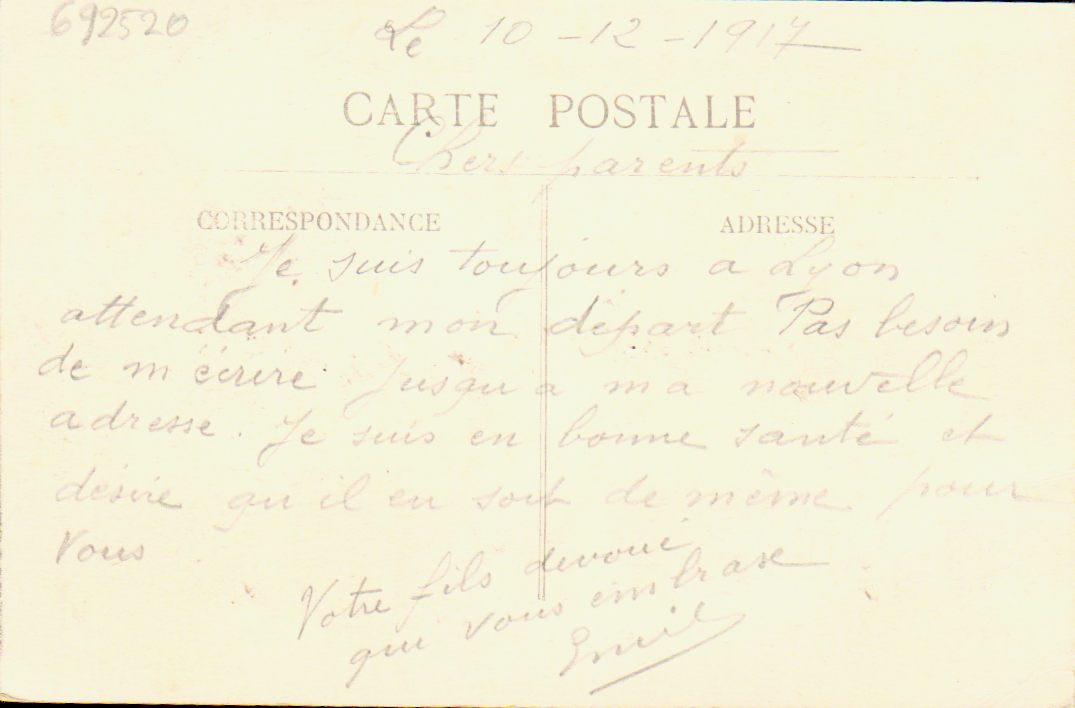 692520
Le 10-12-1917
CARTE POSTALE
Chers parents
CORRESPONDANCE ADRESSE
Je suis toujours a Lyon
attendant mon départ Pas besoin
de m'écrire jusqu'a ma nouvelle
adresse. Je suis en bonne santé et
désire qu'il en soit de même pour
vous
Votre fils devoué
qui vous embrase
Emile